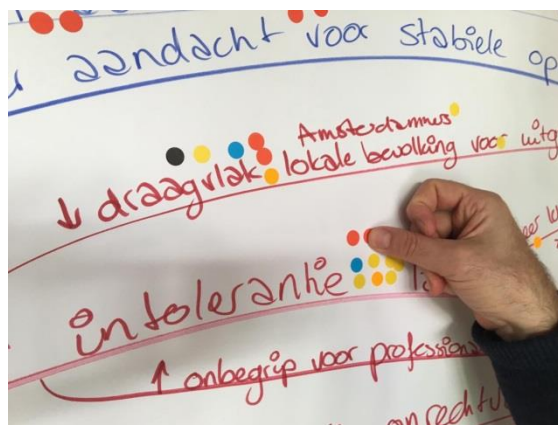 aandacht voor stabiele op
Amsterdammers
↓ draagvlak lokale bevolking voor uitg
intolerantie
↑ onbegrip voor professiona